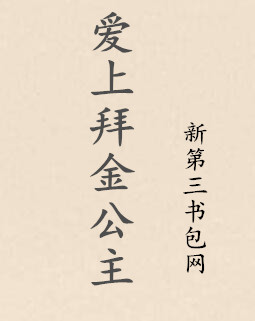 爱上拜金公主
新第三书包网